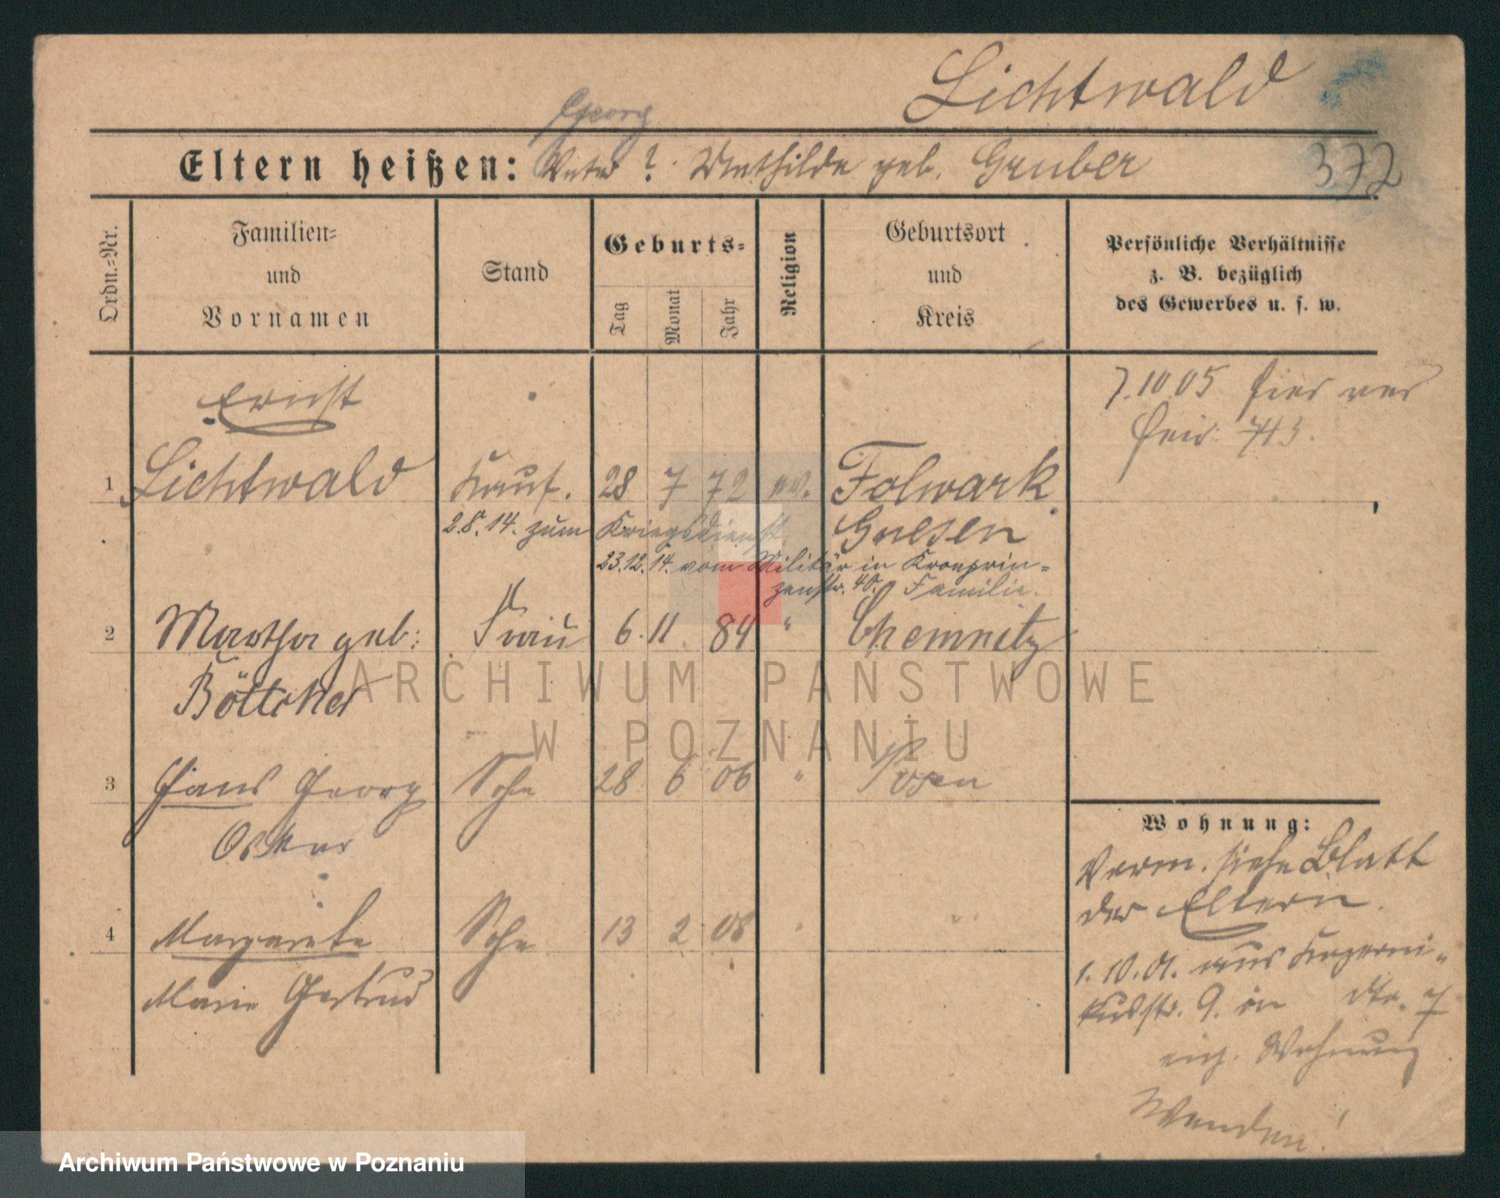 Lichtwald
Georg
Eltern heißen: Vater ? Mathilde geb. Gruber
372
Ordn.-Nr.
Familien-
und
Vornamen
Stand
Geburts-
Tag
Monat
Jahr
Religion
Geburtsort
und
Kreis
Persönliche Verhältnisse
z. B. bezüglich
des Gewerbes u. s. w.
Ernst
7.10 05
1 Lichtwald Kauf. 28 7 72 ev. Folwark
Gnesen
2.8.14. zum Kriegsdienst
23.12.14. vom Militär in Kronprin-
zenstr. 40. Familie.
2 Martha geb: Frau 6. 11. 84 " Chemnitz
Böttcher
3 Hans Georg Sohn 28 6 06 " Posen
Oskar
4 Margarete 13 2 08 " "
Marie Gertrud
Wohnung:
Verm. siehe Blatt
der Eltern.
1.10.01. aus Koperni-
kusstr. 9. in dto. 7
eig. Wohnung
Wenden!
ARCHIWUM PAŃSTWOWE
W POZNANIU
Archiwum Państwowe w Poznaniu